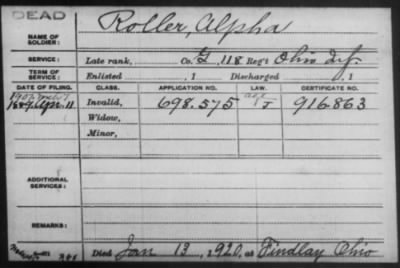 DEAD
NAME OF SOLDIER: Roller, Alpha
SERVICE: Late rank, Co. G, 118 Reg't Ohio Inf.
TERM OF SERVICE: Enlisted , 1 Discharged , 1
DATE OF FILING. CLASS. APPLICATION NO. LAW. CERTIFICATE NO.
1889 Apr. 11 Invalid, 698.575 J 916.863
Widow,
Minor,
ADDITIONAL SERVICES:
REMARKS:
Died Jan 13, 1920, at Findlay Ohio